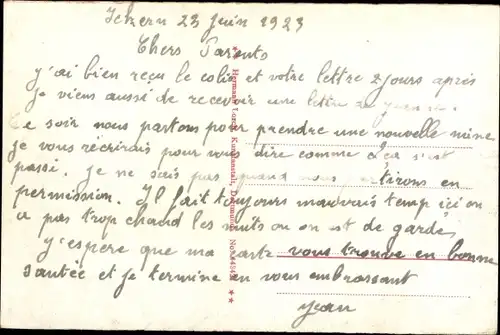 Ickern 23 juin 1923
Chers Parents
j'ai bien reçu le colis et votre lettre 2 jours après
je viens aussi de recevoir une lettre de
Ce soir nous partons pour prendre une nouvelle mine
je vous récrirais pour vous dire comme ça s'est
passé. je ne sais pas quand nous partirons en
permission. Il fait toujours mauvais temp ici on
a pas trop chaud les nuits ou on est de garde,
j'espère que ma carte vous trouve en bonne
santée et je termine en vous embrassant
jean
Hermann Lorch, Kunstanstalt, Dortmund